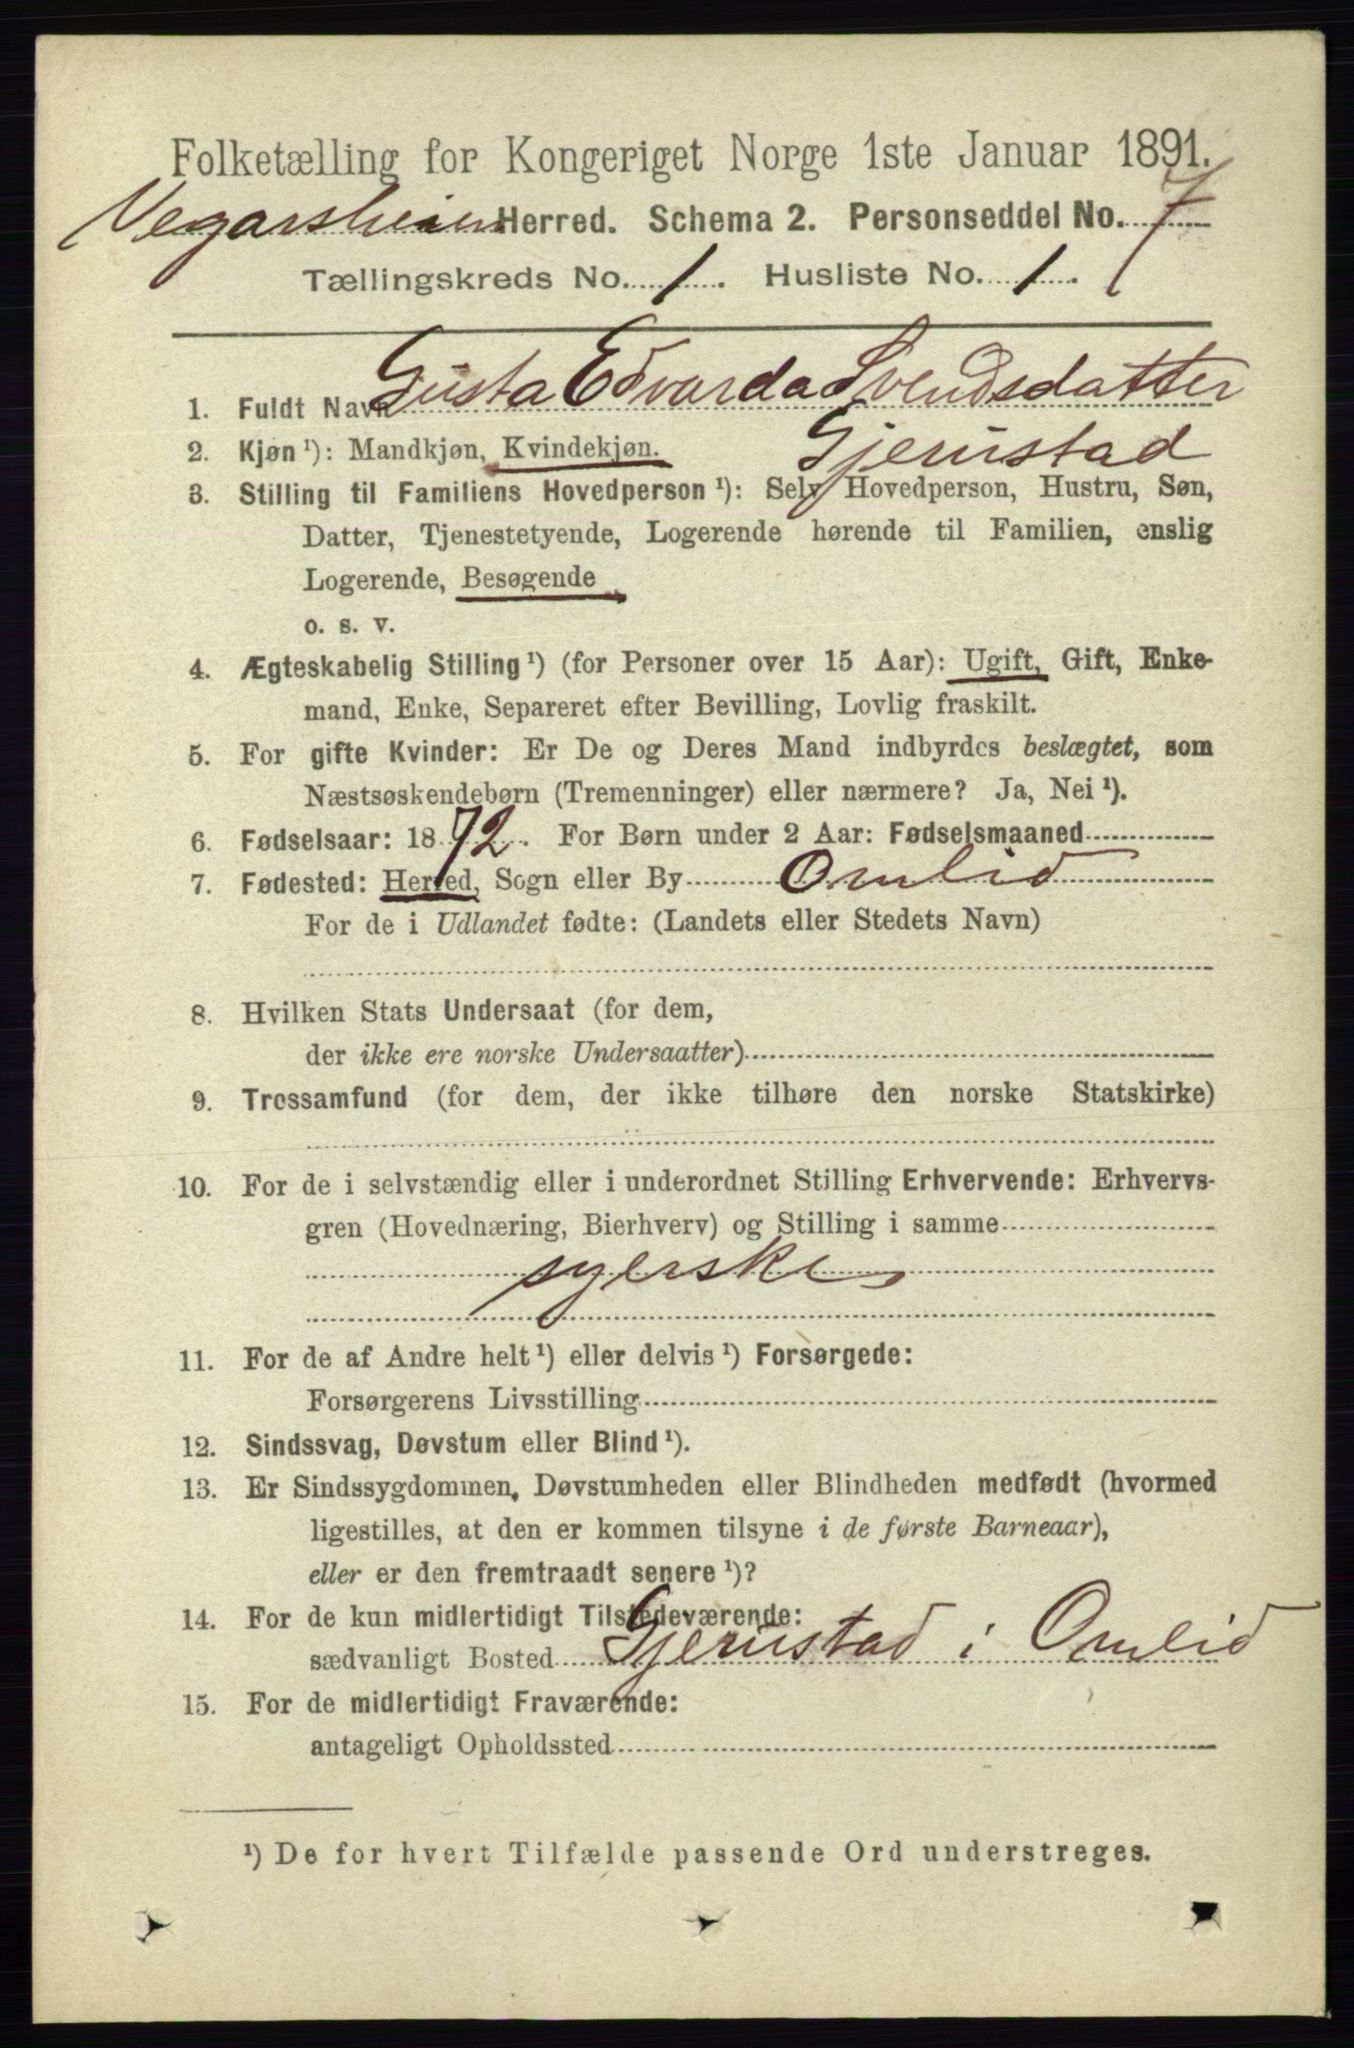 Folketælling for Kongeriget Norge 1ste Januar 1891.
Vegarsheien Herred. Schema 2. Personseddel No. 7
Tællingskreds No. 1. Husliste No. 1.
1. Fuldt Navn Gusta Edvarda Svendsdatter
Gjerustad
2. Kjøn ¹): Mandkjøn, Kvindekjøn.
3. Stilling til Familiens Hovedperson ¹): Selv Hovedperson, Hustru, Søn,
Datter, Tjenestetyende, Logerende hørende til Familien, enslig
Logerende, Besøgende
o. s. v.
4. Ægteskabelig Stilling ¹) (for Personer over 15 Aar): Ugift, Gift, Enke-
mand, Enke, Separeret efter Bevilling, Lovlig fraskilt.
5. For gifte Kvinder: Er De og Deres Mand indbyrdes beslægtet, som
Næstsøskendebørn (Tremenninger) eller nærmere? Ja, Nei ¹).
6. Fødselsaar: 1872. For Børn under 2 Aar: Fødselsmaaned
7. Fødested: Herred, Sogn eller By Omlid
For de i Udlandet fødte: (Landets eller Stedets Navn)
8. Hvilken Stats Undersaat (for dem,
der ikke ere norske Undersaatter)
9. Trossamfund (for dem, der ikke tilhøre den norske Statskirke)
10. For de i selvstændig eller i underordnet Stilling Erhvervende: Erhvervs-
gren (Hovednæring, Bierhverv) og Stilling i samme
syerske
11. For de af Andre helt ¹) eller delvis ¹) Forsørgede:
Forsørgerens Livsstilling
12. Sindssvag, Døvstum eller Blind ¹).
13. Er Sindssygdommen, Døvstumheden eller Blindheden medfødt (hvormed
ligestilles, at den er kommen tilsyne i de første Barneaar),
eller er den fremtraadt senere ¹)?
14. For de kun midlertidigt Tilstedeværende:
sædvanligt Bosted Gjerustad i Omlid
15. For de midlertidigt Fraværende:
antageligt Opholdssted
¹) De for hvert Tilfælde passende Ord understreges.